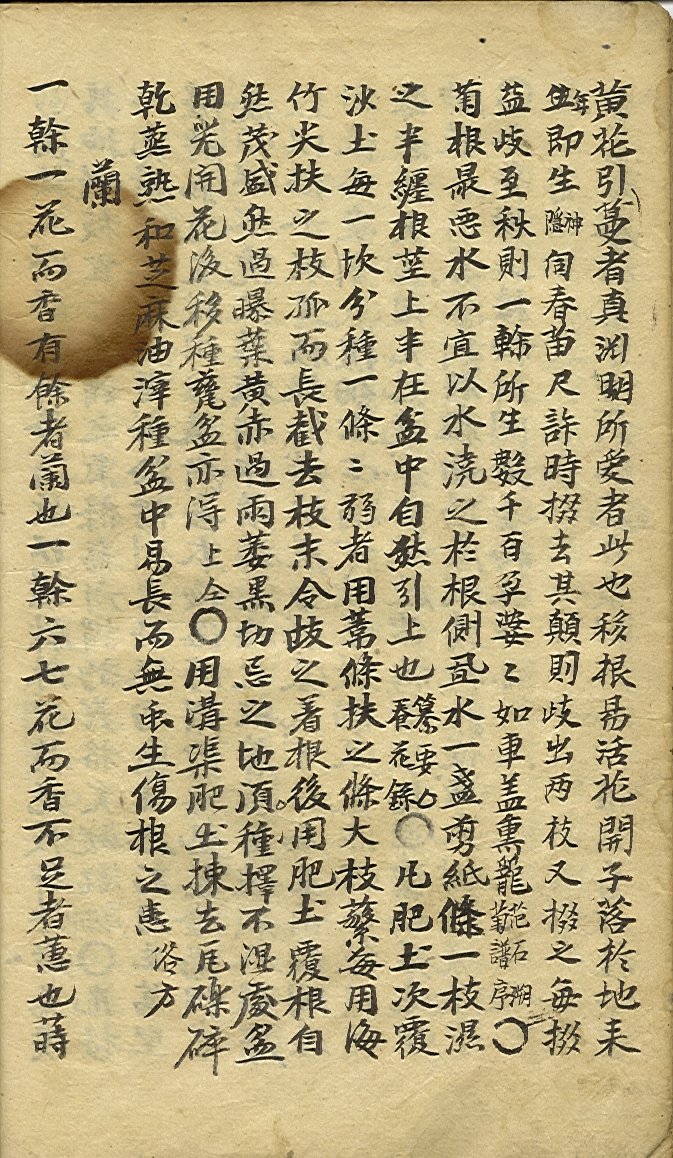 黃花引蔓者真渊明所愛者此也移根易活花開子落於地来
年即生神隐伺春苗尺許時掇去其顛則歧出两枝又掇之每掇
益歧至秋則一幹所生數千百朶婆〻如車盖熏籠范石湖菊譜序〇
菊根最惡水不宜以水澆之於根側置水一盞剪紙條一枝濕
之半纏根莖上半在盆中自然引上也纂要養花錄〇凡肥土次覆
沙土每一坎分種一條〻弱者用葦條扶之條大枝蘩每用海
竹尖扶之枝孤而長截去枝末令歧之着根後用肥土覆根自
然茂盛然過曝葉黃赤過雨萎黒切忌之地湏種擇不湿處盆
用先開花後移種甕盆亦得上仝〇用溝渠肥土揀去瓦礫碎
乾蒸熟和芝麻油滓種盆中易長而無虫生傷根之患俗方
蘭
一幹一花而香有餘者蘭也一幹六七花而香不足者蕙也蒔